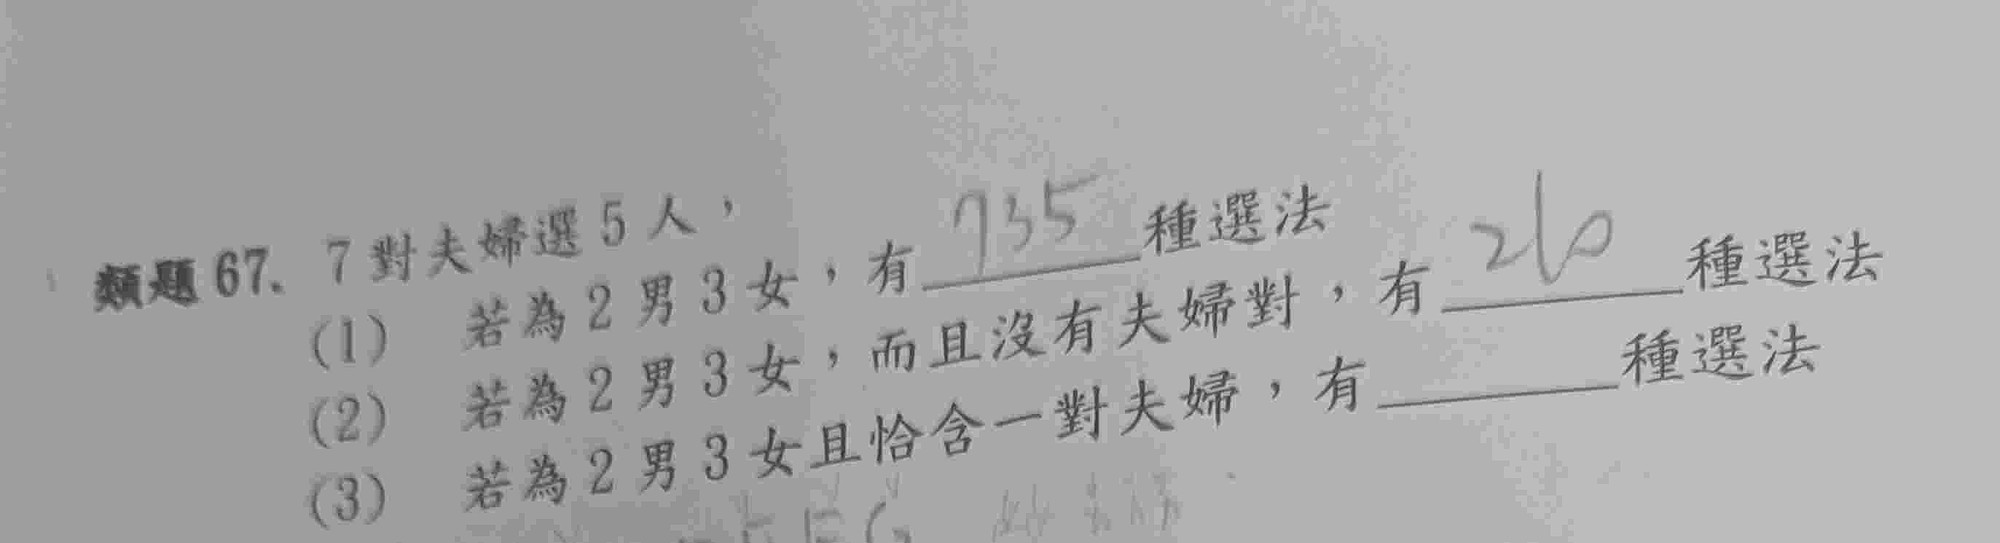 類題67. 7對夫婦選5人，
(1) 若為2男3女，有 735 種選法
(2) 若為2男3女，而且沒有夫婦對，有 210 種選法
(3) 若為2男3女且恰含一對夫婦，有______種選法